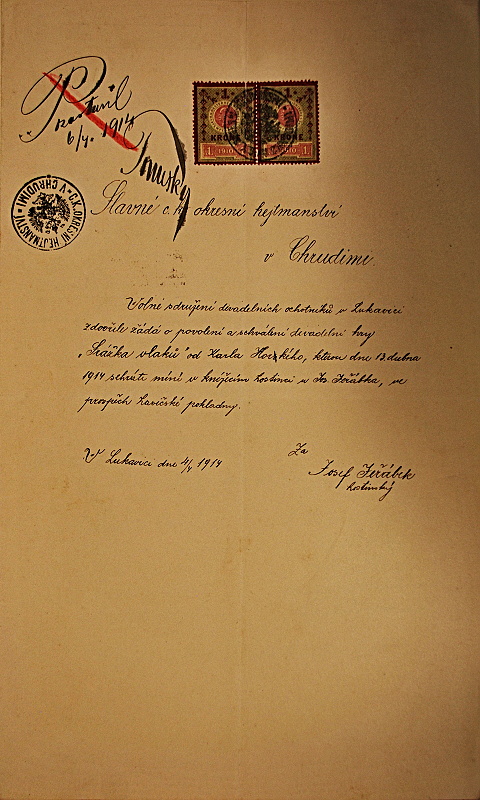 6/4. 1914
1 1
KRONE KRONE
1 1910 1910 1
C.K. OKRESNÍ HEJTMANSTVÍ V CHRUDIMI
Slavné c. k. okresní hejtmanství
v Chrudimi.
Volné sdružení divadelních ochotníků v Lukavici
zdvořile žádá o povolení a schválení divadelní hry
„Srážka vlaků" od Karla, kterou dne 13. dubna
1914 sehráti míní v knížecím hostinci u Jos. Jeřábka, ve
prospěch pokladny.
V Lukavici dne 4/4 1914
Za
Josef Jeřábek
hostinský